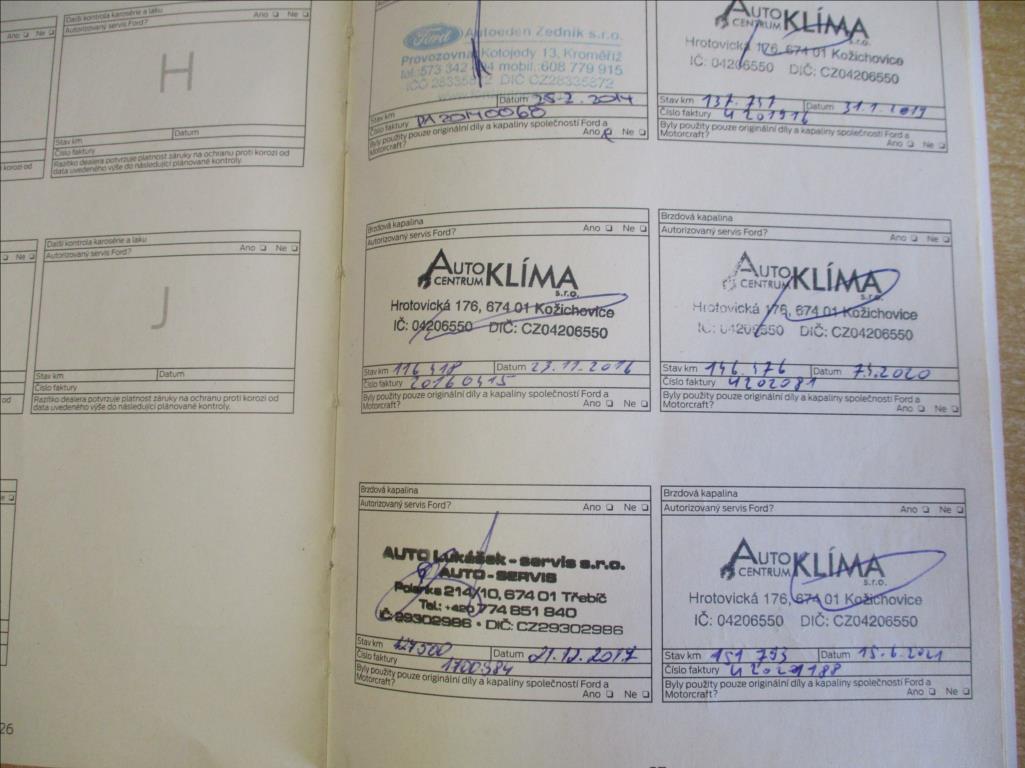 Ano Ne
Další kontrola karosérie a laku
Autorizovaný servis Ford?
Ano Ne
H
Stav km
Datum
Číslo faktury
Razítko dealera potvrzuje platnost záruky na ochranu proti korozi od
data uvedeného výše do následující plánované kontroly.
korozi od
Ne
Další kontrola karosérie a laku
Autorizovaný servis Ford?
Ano Ne
J
Stav km
Datum
Číslo faktury
Razítko dealera potvrzuje platnost záruky na ochranu proti korozi od
data uvedeného výše do následující plánované kontroly.
od
26
Ford Autoeden Zedník s.r.o.
Provozovna Kotojedy 13, Kroměříž
tel.:573 342 mobil.:608 779 915
IČO 28335872 DIČ CZ28335872
Stav km
Datum 25-2.2014
Číslo faktury PA20140068
Byly použity pouze originální díly a kapaliny společnosti Ford a
Motorcraft?
Ano Ne
AUTO KLÍMA
CENTRUM s.r.o.
Hrotovická 176, 674 01 Kožichovice
IČ: 04206550 DIČ: CZ04206550
Stav km 137.737
Datum 31.1.2019
Číslo faktury 4201916
Byly použity pouze originální díly a kapaliny společnosti Ford a
Motorcraft?
Ano Ne
Brzdová kapalina
Autorizovaný servis Ford?
Ano Ne
AUTO KLÍMA
CENTRUM s.r.o.
Hrotovická 176, 674 01 Kožichovice
IČ: 04206550 DIČ: CZ04206550
Stav km 116 418
Datum 23.11.2016
Číslo faktury 20160415
Byly použity pouze originální díly a kapaliny společnosti Ford a
Motorcraft?
Ano Ne
Brzdová kapalina
Autorizovaný servis Ford?
Ano Ne
AUTO KLÍMA
CENTRUM s.r.o.
Hrotovická 176, 674 01 Kožichovice
IČ: 04206550 DIČ: CZ04206550
Stav km 146.376
Datum
Číslo faktury 4202081
Byly použity pouze originální díly a kapaliny společnosti Ford a
Motorcraft?
Ano Ne
Brzdová kapalina
Autorizovaný servis Ford?
Ano Ne
AUTO Lukášek - servis s.r.o.
AUTO - SERVIS
Polanka 214/10, 674 01 Třebíč
Tel.: +420 774 851 840
IČ: 29302986 • DIČ: CZ29302986
Stav km 127500
Datum 21.12.2017
Číslo faktury 1700984
Byly použity pouze originální díly a kapaliny společnosti Ford a
Motorcraft?
Ano Ne
Brzdová kapalina
Autorizovaný servis Ford?
Ano Ne
AUTO KLÍMA
CENTRUM s.r.o.
Hrotovická 176, 674 01 Kožichovice
IČ: 04206550 DIČ: CZ04206550
Stav km 151 793
Datum 15.6.2021
Číslo faktury
Byly použity pouze originální díly a kapaliny společnosti Ford a
Motorcraft?
Ano Ne